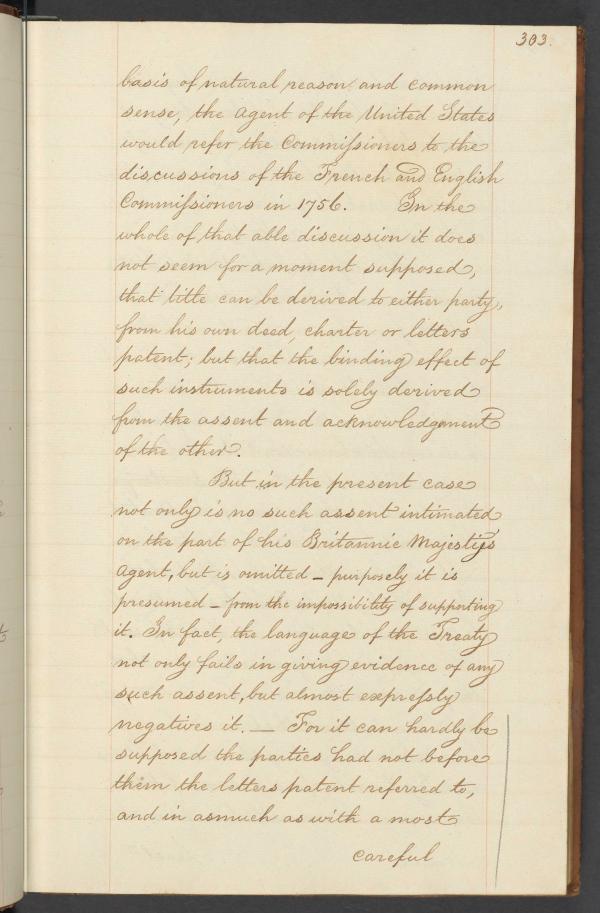 303.
basis of natural reason and common
sense, the Agent of the United States
would refer the Commissioners to the
discussions of the French and English
Commissioners in 1756. In the
whole of that able discussion it does
not seem for a moment supposed,
that title can be derived to either party,
from his own deed, charter or letters
patent; but that the binding effect of
such instruments is solely derived
from the assent and acknowledgement
of the other.
But in the present case
not only is no such assent intimated
on the part of his Britannic Majesty's
Agent, but is omitted – purposely it is
presumed – from the impossibility of supporting
it. In fact, the language of the Treaty
not only fails in giving evidence of any
such assent, but almost expressly
negatives it. — For it can hardly be
supposed the parties had not before
them the letters patent referred to,
and in asmuch as with a most
careful